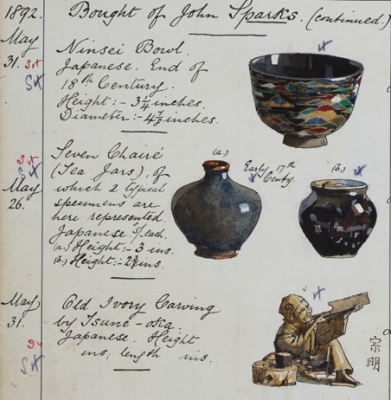 1892. Bought of John Sparks. (continued)
May 31.
Ninsei Bowl.
Japanese. End of
18th Century.
Height:- 3 1/4 inches.
Diameter:- 4 7/8 inches.
May 26.
Seven Chairé
(Tea Jars), of
which 2 typical
specimens are
here represented.
Japanese.
(a) Height:- 3 ins.
(b) Height:- ins.
(a.)
Early 17th
Centy.
(b.)
May 31.
Old Ivory Carving
by Tsune-oka.
Japanese. Height
ins, length ins.
宗
明